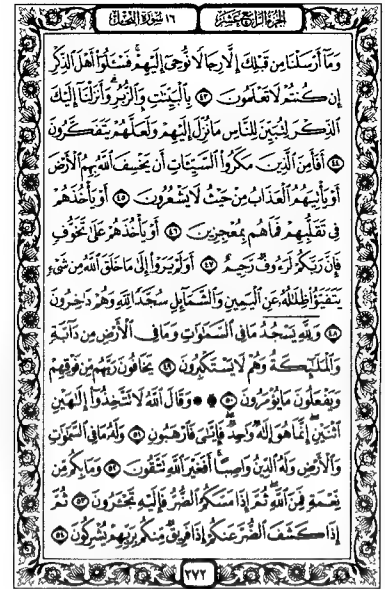 الجُزْءُ الرَّابِعُ عَشَرَ
١٦ سُورَةُ النَّحْلِ
وَمَآ أَرْسَلْنَا مِن قَبْلِكَ إِلَّا رِجَالًا نُّوحِىٓ إِلَيْهِمْ ۚ فَسْـَٔلُوٓا۟ أَهْلَ ٱلذِّكْرِ
إِن كُنتُمْ لَا تَعْلَمُونَ ٤٣ بِٱلْبَيِّنَـٰتِ وَٱلزُّبُرِ ۗ وَأَنزَلْنَآ إِلَيْكَ
ٱلذِّكْرَ لِتُبَيِّنَ لِلنَّاسِ مَا نُزِّلَ إِلَيْهِمْ وَلَعَلَّهُمْ يَتَفَكَّرُونَ
٤٤ أَفَأَمِنَ ٱلَّذِينَ مَكَرُوا۟ ٱلسَّيِّـَٔاتِ أَن يَخْسِفَ ٱللَّهُ بِهِمُ ٱلْأَرْضَ
أَوْ يَأْتِيَهُمُ ٱلْعَذَابُ مِنْ حَيْثُ لَا يَشْعُرُونَ ٤٥ أَوْ يَأْخُذَهُمْ
فِى تَقَلُّبِهِمْ فَمَا هُم بِمُعْجِزِينَ ٤٦ أَوْ يَأْخُذَهُمْ عَلَىٰ تَخَوُّفٍ
فَإِنَّ رَبَّكُمْ لَرَءُوفٌ رَّحِيمٌ ٤٧ أَوَلَمْ يَرَوْا۟ إِلَىٰ مَا خَلَقَ ٱللَّهُ مِن شَىْءٍ
يَتَفَيَّؤُا۟ ظِلَـٰلُهُۥ عَنِ ٱلْيَمِينِ وَٱلشَّمَآئِلِ سُجَّدًا لِّلَّهِ وَهُمْ دَٰخِرُونَ
٤٨ وَلِلَّهِ يَسْجُدُ مَا فِى ٱلسَّمَـٰوَٰتِ وَمَا فِى ٱلْأَرْضِ مِن دَآبَّةٍ
وَٱلْمَلَـٰٓئِكَةُ وَهُمْ لَا يَسْتَكْبِرُونَ ٤٩ يَخَافُونَ رَبَّهُم مِّن فَوْقِهِمْ
وَيَفْعَلُونَ مَا يُؤْمَرُونَ ۩ ٥٠ ۞ وَقَالَ ٱللَّهُ لَا تَتَّخِذُوٓا۟ إِلَـٰهَيْنِ
ٱثْنَيْنِ ۖ إِنَّمَا هُوَ إِلَـٰهٌ وَٰحِدٌ ۖ فَإِيَّـٰىَ فَٱرْهَبُونِ ٥١ وَلَهُۥ مَا فِى ٱلسَّمَـٰوَٰتِ
وَٱلْأَرْضِ وَلَهُ ٱلدِّينُ وَاصِبًا ۚ أَفَغَيْرَ ٱللَّهِ تَتَّقُونَ ٥٢ وَمَا بِكُم مِّن
نِّعْمَةٍ فَمِنَ ٱللَّهِ ۖ ثُمَّ إِذَا مَسَّكُمُ ٱلضُّرُّ فَإِلَيْهِ تَجْـَٔرُونَ ٥٣ ثُمَّ
إِذَا كَشَفَ ٱلضُّرَّ عَنكُمْ إِذَا فَرِيقٌ مِّنكُم بِرَبِّهِمْ يُشْرِكُونَ ٥٤
٢٧٢